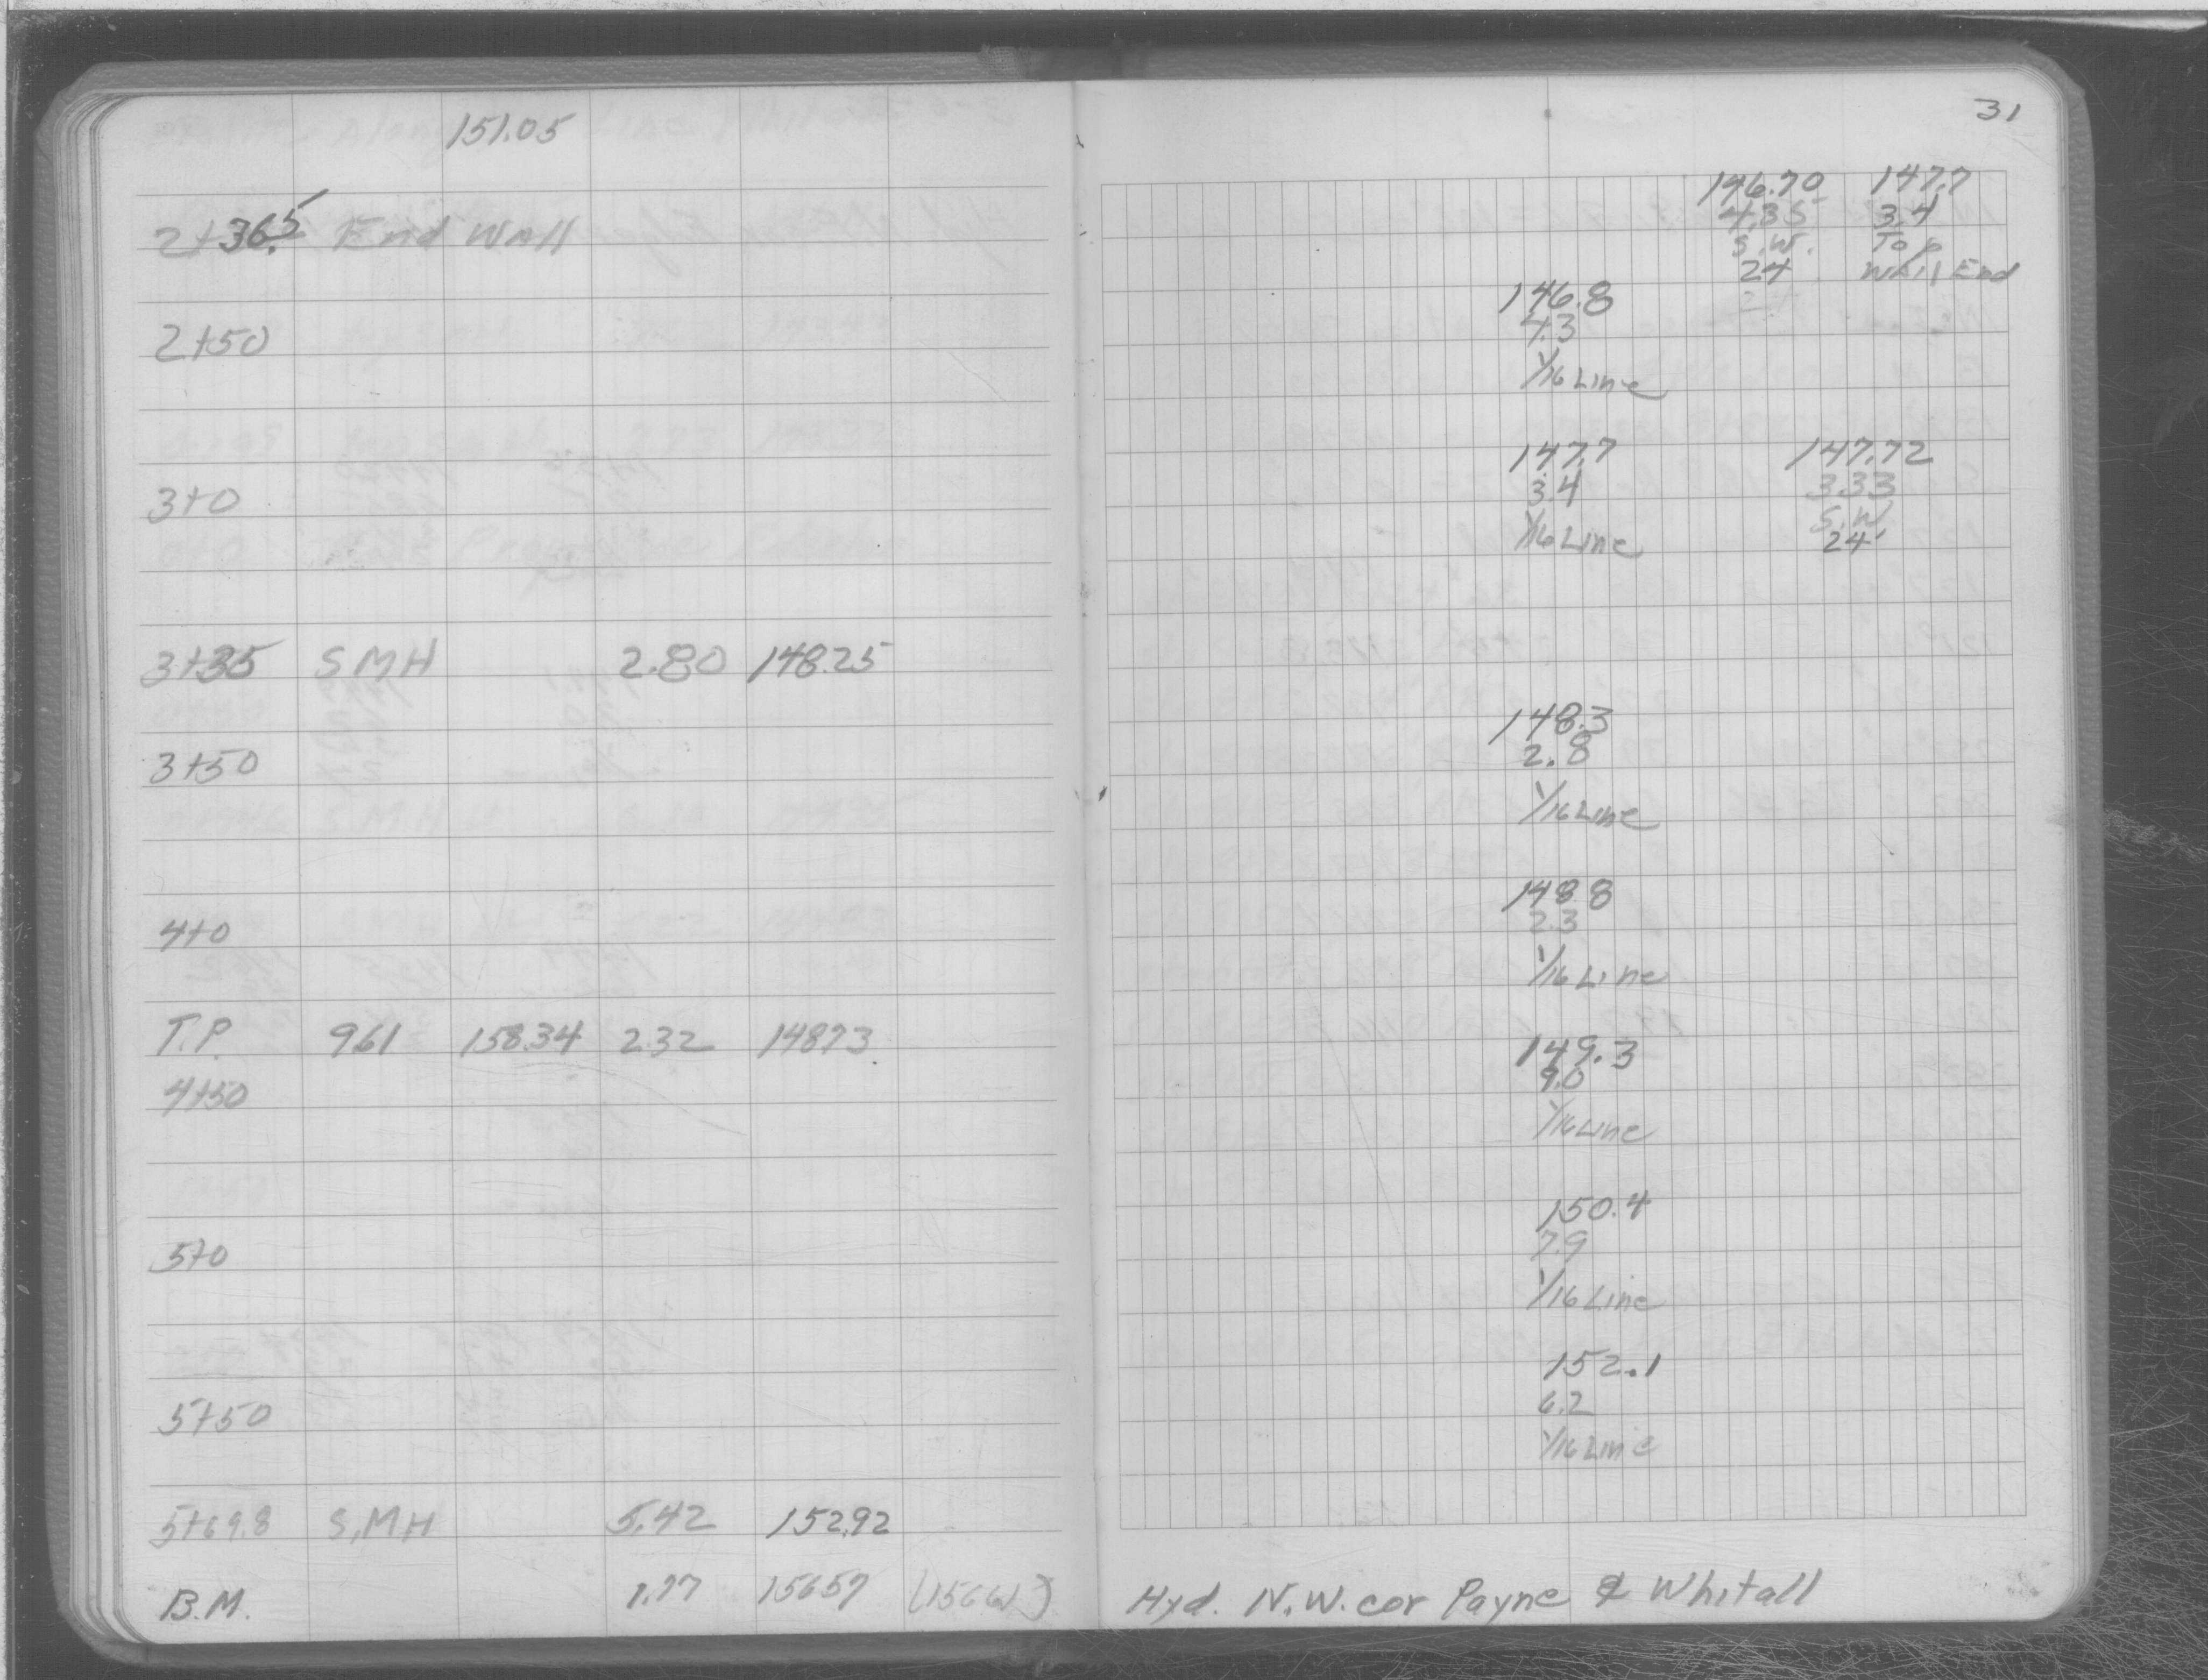 151.05
2+36.5 End Wall
2+50
3+0
3+35 SMH 2.80 148.25
3+50
4+0
T.P. 961 158.34 232 14873
4+50
5+0
5+50
5+69.8 S.MH 5.42 152.92
B.M. 1.77 15657 (15661)
31
146.70 147.7
4.35 3.4
S.W. Top
24 Wall End
146.8
4.3
1/16 Line
147.7 147.72
3.4 3.33
1/16 Line S.W.
24'
148.3
2.8
1/16 Line
148.8
2.3
1/16 Line
149.3
9.0
1/16 Line
150.4
7.9
1/16 Line
152.1
6.2
1/16 Line
Hyd. N.W. cor Payne & Whitall